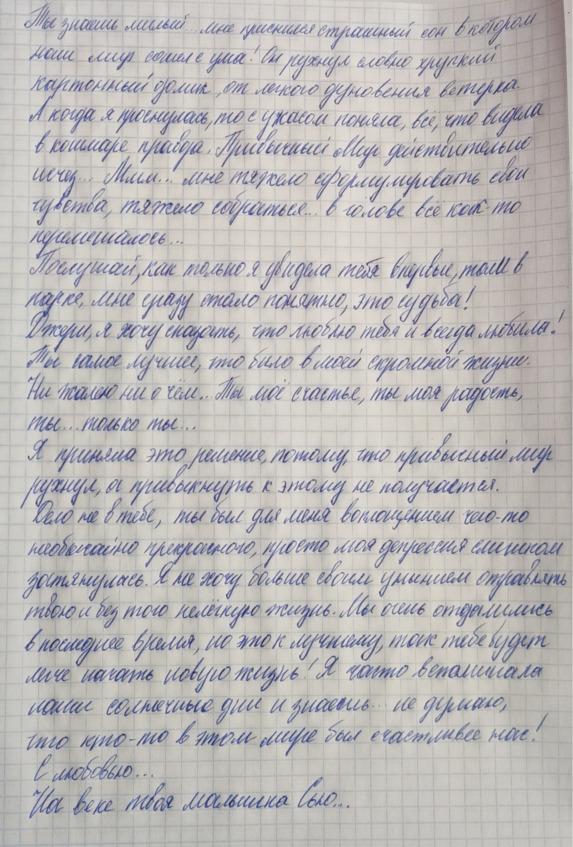 Ты знаешь милый... мне приснился страшный сон в котором
наш мир сошел с ума! Он рухнул словно хрупкий
картонный домик, от легкого дуновения ветерка.
А когда я проснулась, то с ужасом поняла, всё, что видела
в кошмаре правда. Привычный Мир действительно
исчез... Ммм... мне тяжело сформулировать свои
чувства, тяжело собраться.. в голове всё как-то
перемешалось...
Послушай, как только я увидела тебя впервые, там в
парке, мне сразу стало понятно, это судьба!
Джери, я хочу сказать, что люблю тебя и всегда любила!
Ты самое лучшее, что было в моей скромной жизни.
Ни жалею ни о чём.. Ты моё счастье, ты моя радость,
ты... только ты...
Я приняла это решение, потому, что привычный мир
рухнул, а привыкнуть к этому не получается.
Дело не в тебе, ты был для меня воплощением чего-то
необычайно прекрасного, просто моя депрессия слишком
затянулась. Я не хочу больше своим унынием отравлять
твою и без того нелёгкую жизнь. Мы очень отдалились
в последнее время, но это к лучшему, так тебе будет
легче начать новую жизнь! Я часто вспоминала
наши солнечные дни и знаешь... не думаю,
что кто-то в этом мире был счастливее нас!
С любовью...
На веке твоя малышка Сью...